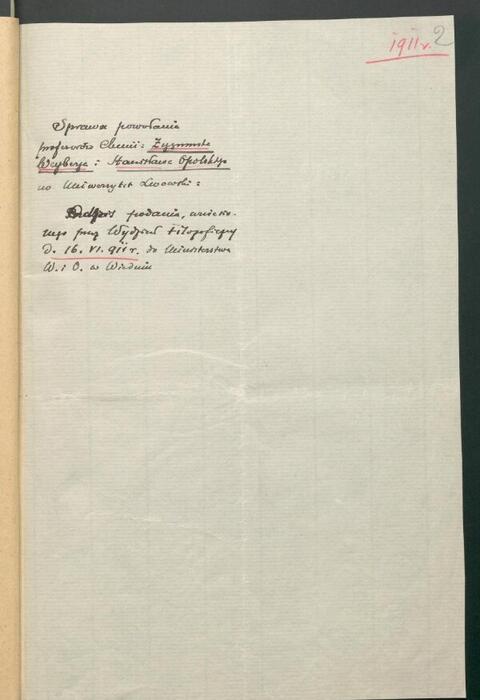 1911 r. 2
Sprawa powołania
profesorów Chemii: Zygmunta
Weyberga i Stanisława Opolskiego
na Uniwersytet Lwowski:
Odpis podania, wniesio-
nego przez Wydział filozoficzny
d. 16. VI. 911 r. do Ministerstwa
W. i O. w Wiedniu